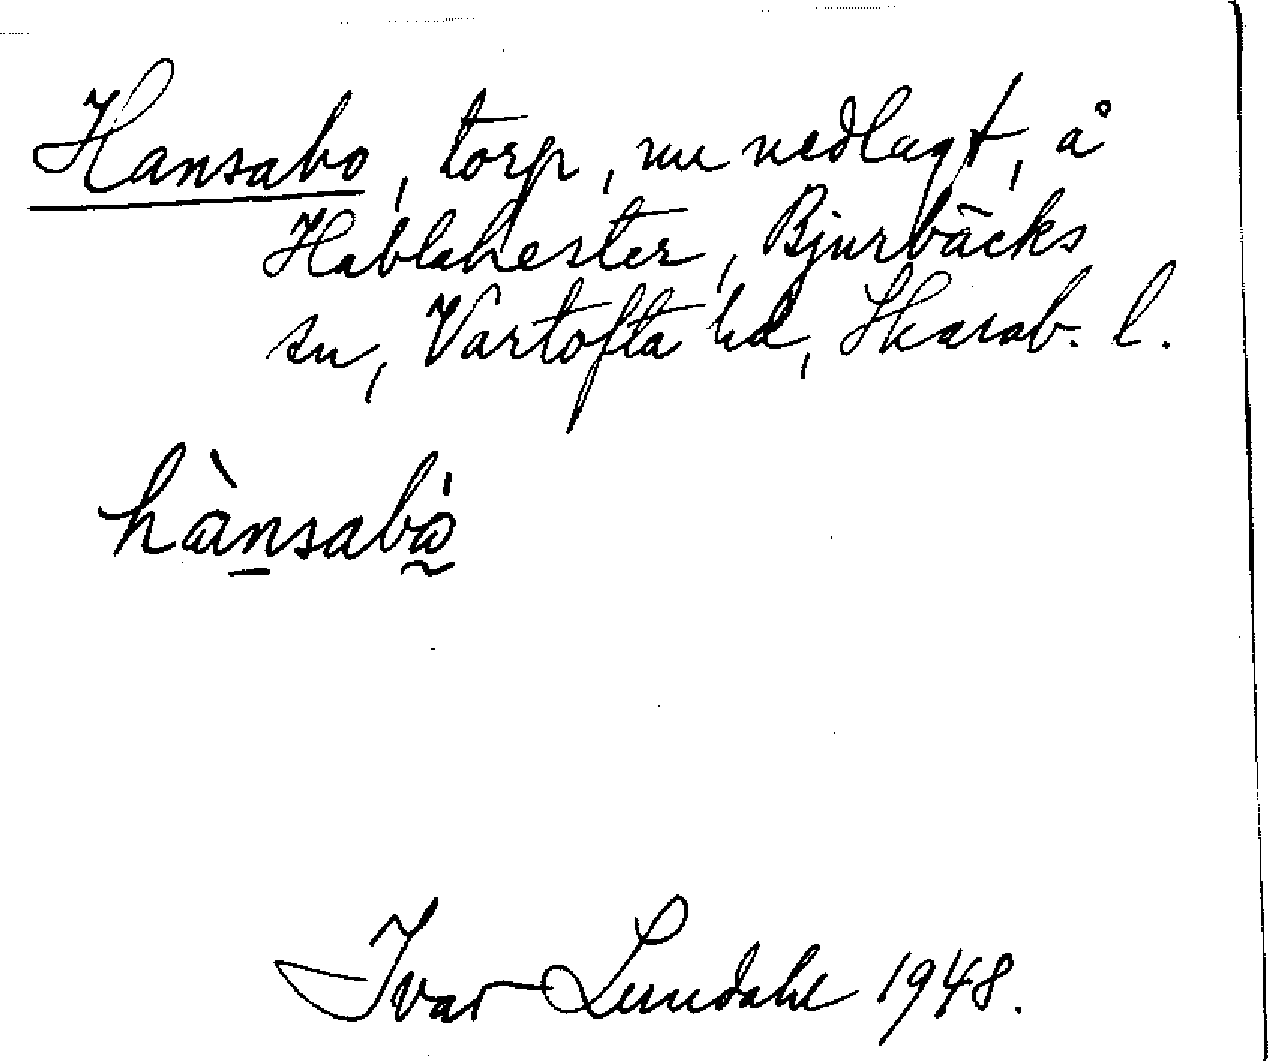 Hansabo, torp, nu nedlagt, å
Hablahester, Bjurbäcks
sn, Vartofta hd, Skarab. l.
hànsabó̰
Ivar Lundahl 1948.